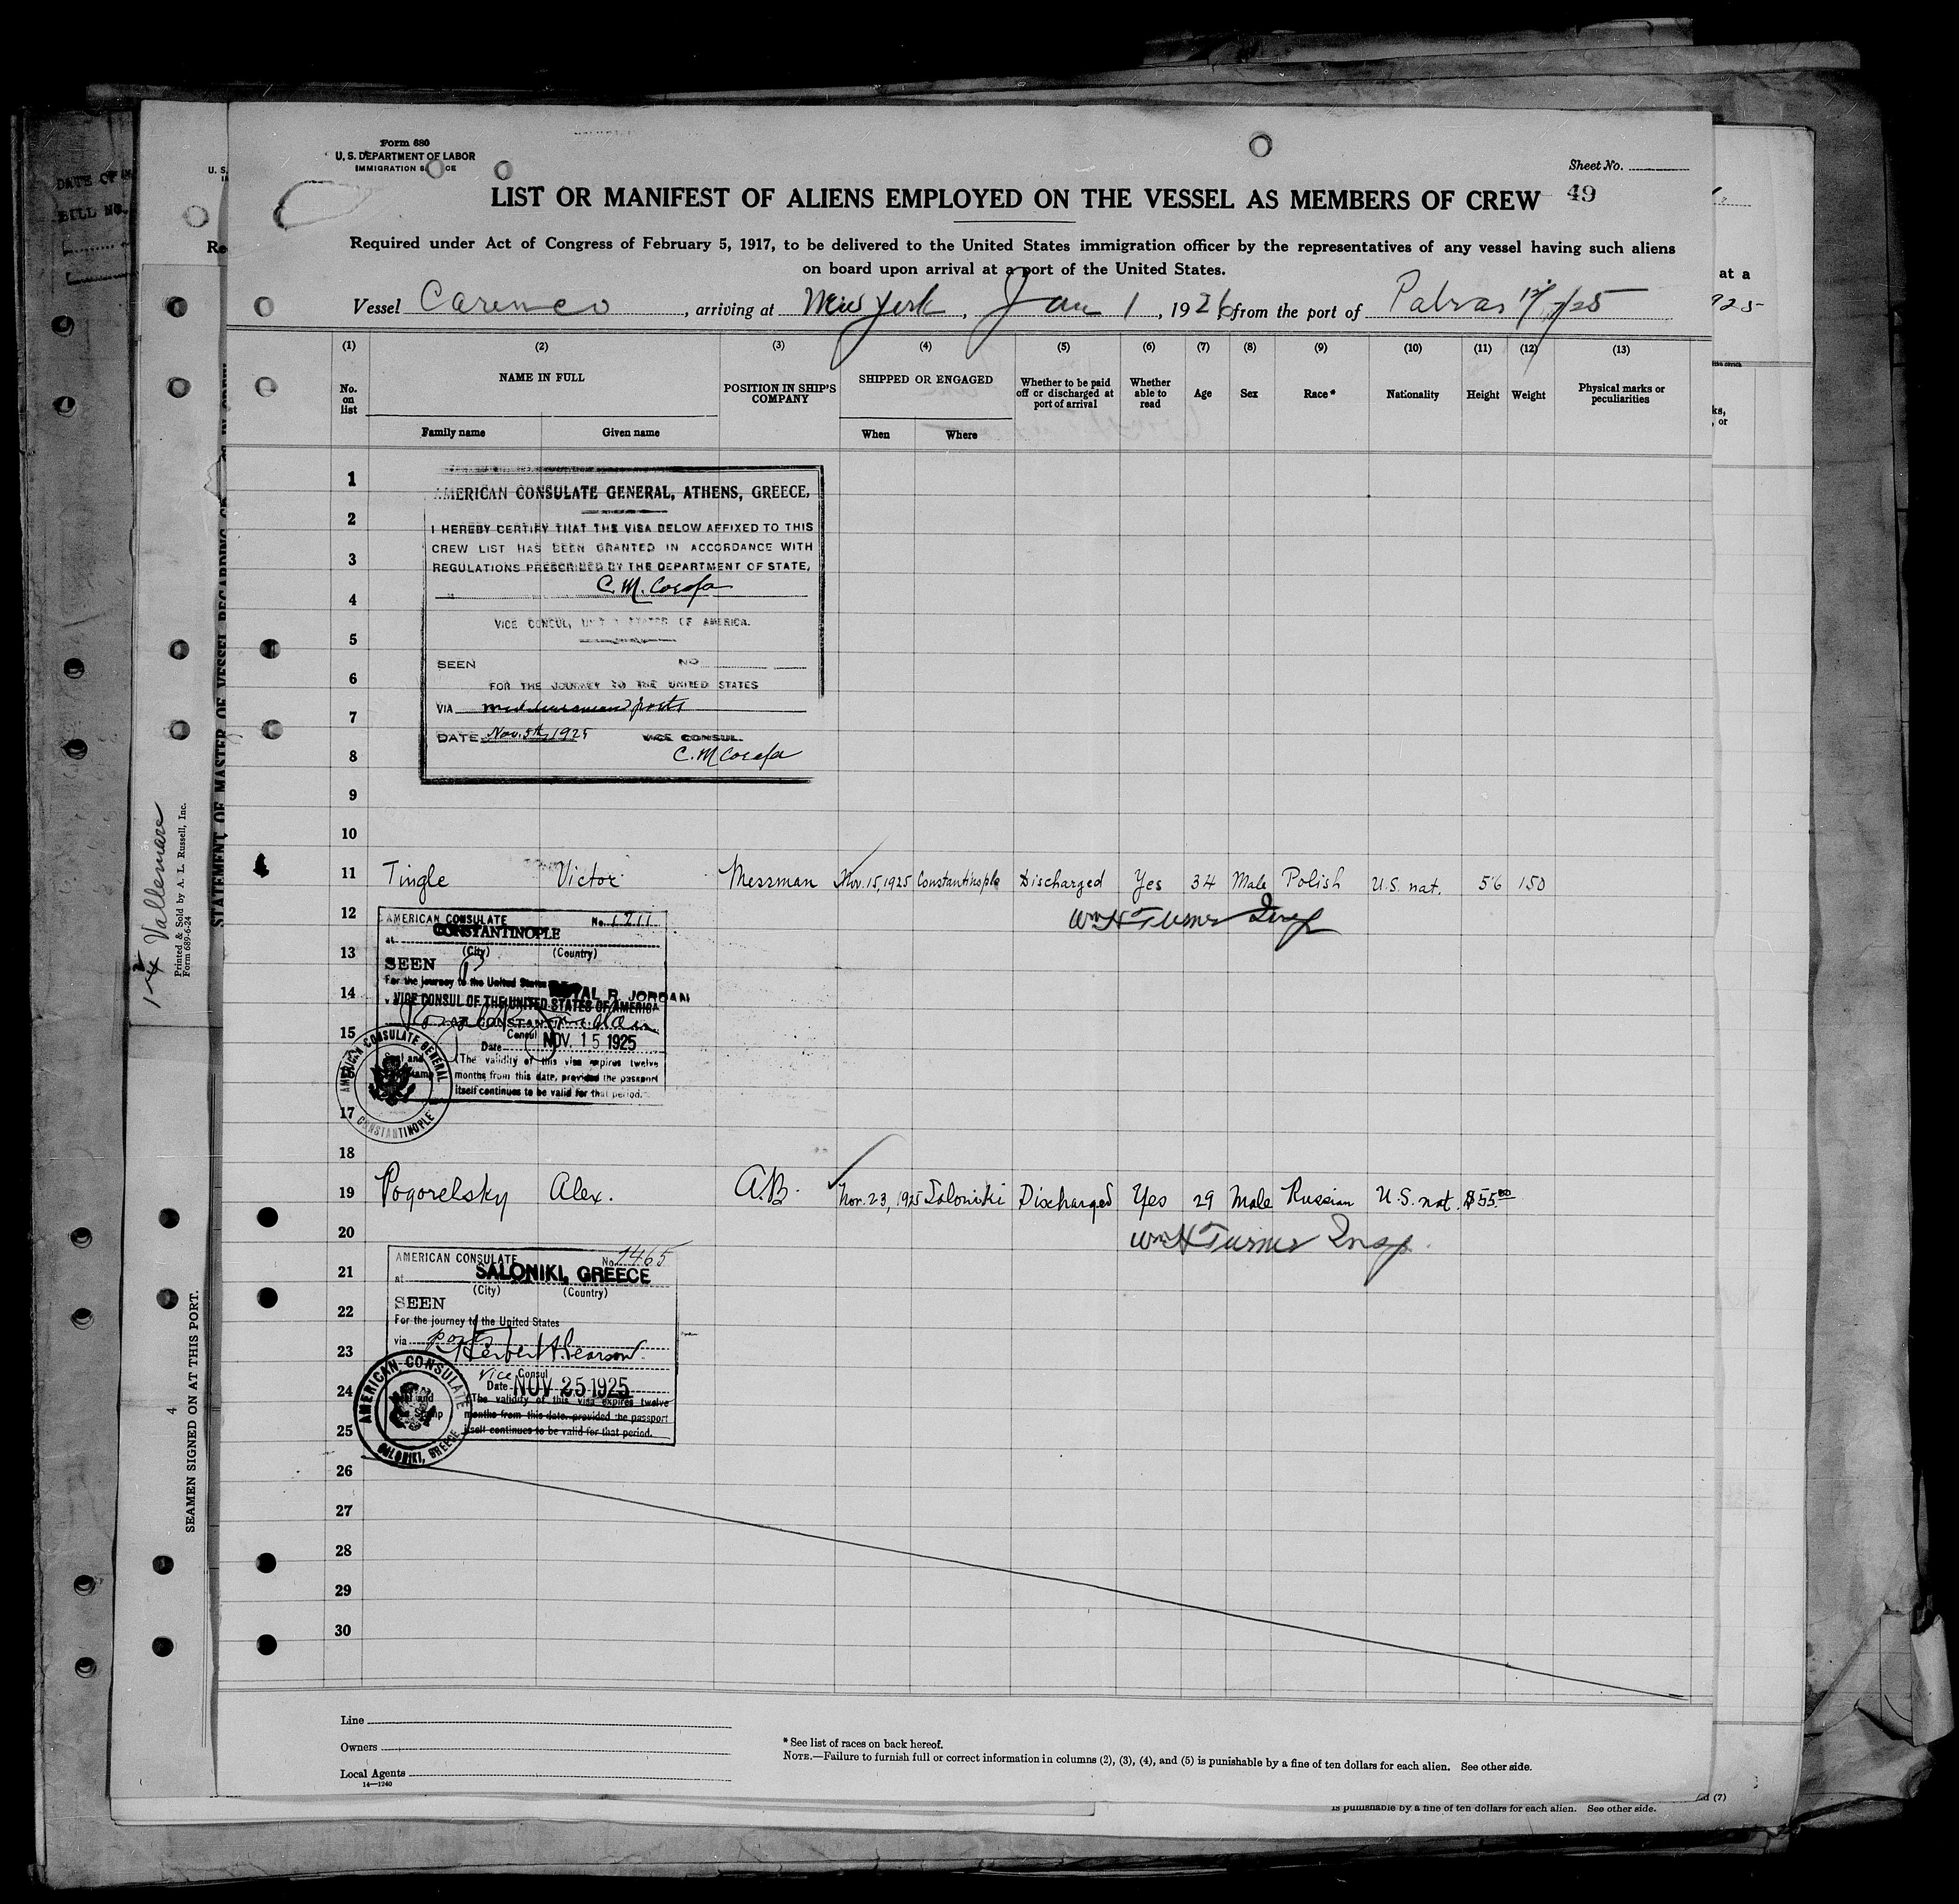 Form 680
U. S. DEPARTMENT OF LABOR
IMMIGRATION SERVICE
Sheet No.
LIST OR MANIFEST OF ALIENS EMPLOYED ON THE VESSEL AS MEMBERS OF CREW 49
Required under Act of Congress of February 5, 1917, to be delivered to the United States immigration officer by the representatives of any vessel having such aliens
on board upon arrival at a port of the United States.
Vessel Carenco, arriving at New York, Jan 1, 1926 from the port of Patras 12/7/25
(1) (2) (3) (4) (5) (6) (7) (8) (9) (10) (11) (12) (13)
No. on list NAME IN FULL POSITION IN SHIP'S COMPANY SHIPPED OR ENGAGED Whether to be paid off or discharged at port of arrival Whether able to read Age Sex Race* Nationality Height Weight Physical marks or peculiarities
Family name Given name When Where
1
AMERICAN CONSULATE GENERAL, ATHENS, GREECE,
2
I HEREBY CERTIFY THAT THE VISA BELOW AFFIXED TO THIS
CREW LIST HAS BEEN GRANTED IN ACCORDANCE WITH
3
REGULATIONS PRESCRIBED BY THE DEPARTMENT OF STATE,
4
VICE CONSUL, UNITED STATES OF AMERICA.
5
SEEN NO
6
FOR THE JOURNEY TO THE UNITED STATES
VIA ports
7
DATE Nov. 5th, 1925 VICE CONSUL.
8
9
10
11 Tingle Victor Messman Nov. 15, 1925 Constantinople Discharged Yes 34 Male Polish U.S. nat. 5'6 150
Wm H Turner Insp
12
AMERICAN CONSULATE No. 1211
at CONSTANTINOPLE
(City) (Country)
13
SEEN
For the journey to the United States
14
ROYAL R. JORDAN
VICE CONSUL OF THE UNITED STATES OF AMERICA
AT CONSTANTINOPLE
15
Consul
Date NOV. 15 1925
(The validity of this visa expires twelve
months from this date, provided the passport
itself continues to be valid for that period.
AMERICAN CONSULATE GENERAL CONSTANTINOPLE
17
18
19 Pogorelsky Alex. A.B. Nov. 23, 1925 Saloniki Discharged Yes 29 Male Russian U.S. nat. $55.00
20
Wm H Turner Insp.
AMERICAN CONSULATE No. 1465
21
at SALONIKI, GREECE
(City) (Country)
22
SEEN
For the journey to the United States
via ports
23
Herbert A. Pearson.
Vice Consul
24
Date NOV 25 1925
(The validity of this visa expires twelve
months from this date, provided the passport
25
itself continues to be valid for that period.
AMERICAN CONSULATE SALONIKI, GREECE
26
27
28
29
30
Line
Owners
Local Agents
14—1240
* See list of races on back hereof.
NOTE.—Failure to furnish full or correct information in columns (2), (3), (4), and (5) is punishable by a fine of ten dollars for each alien. See other side.
is punishable by a fine of ten dollars for each alien. See other side.
at a
925
1-4 Vallemare
Printed & Sold by A. L. Russell, Inc.
Form 689-6-24
STATEMENT OF MASTER OF VESSEL REGARDING
SEAMEN SIGNED ON AT THIS PORT.
4
DATE OF
BILL NO.